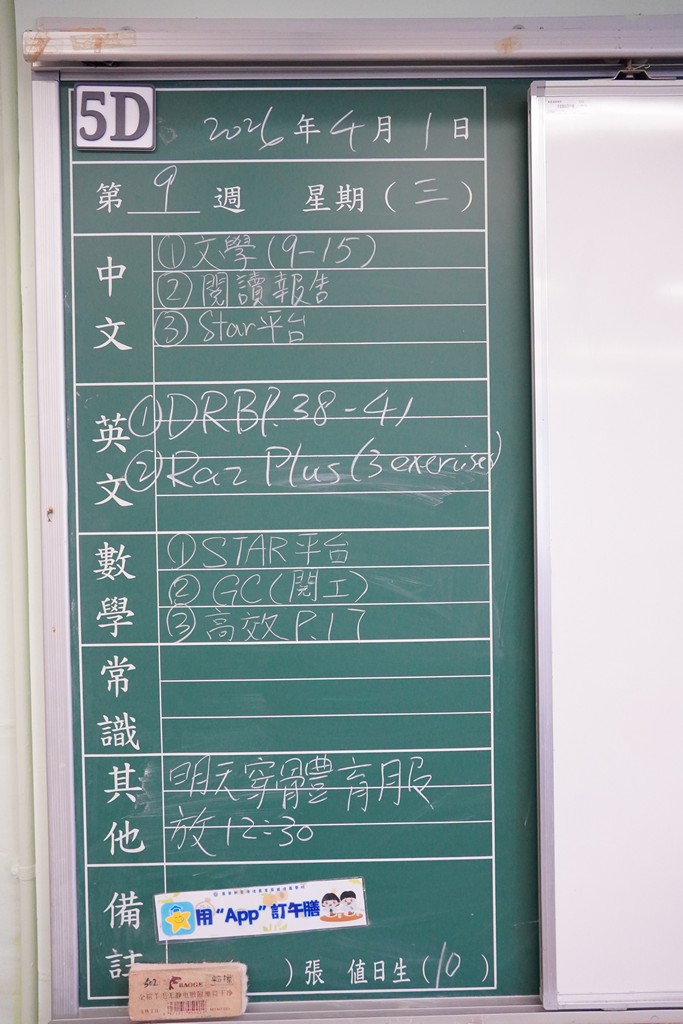 5D
2026年4月1日
第9週 星期(三)
中文
①文學(9-15)
②閱讀報告
③Star平台
英文
①DRB P.38-41
②Raz Plus(3 exercises)
數學
①STAR平台
②GC(閱工)
③高效P.17
常識
其他
明天穿體育服
放12:30
備註
用“App”訂午膳
)張 值日生(10)
BAOKE